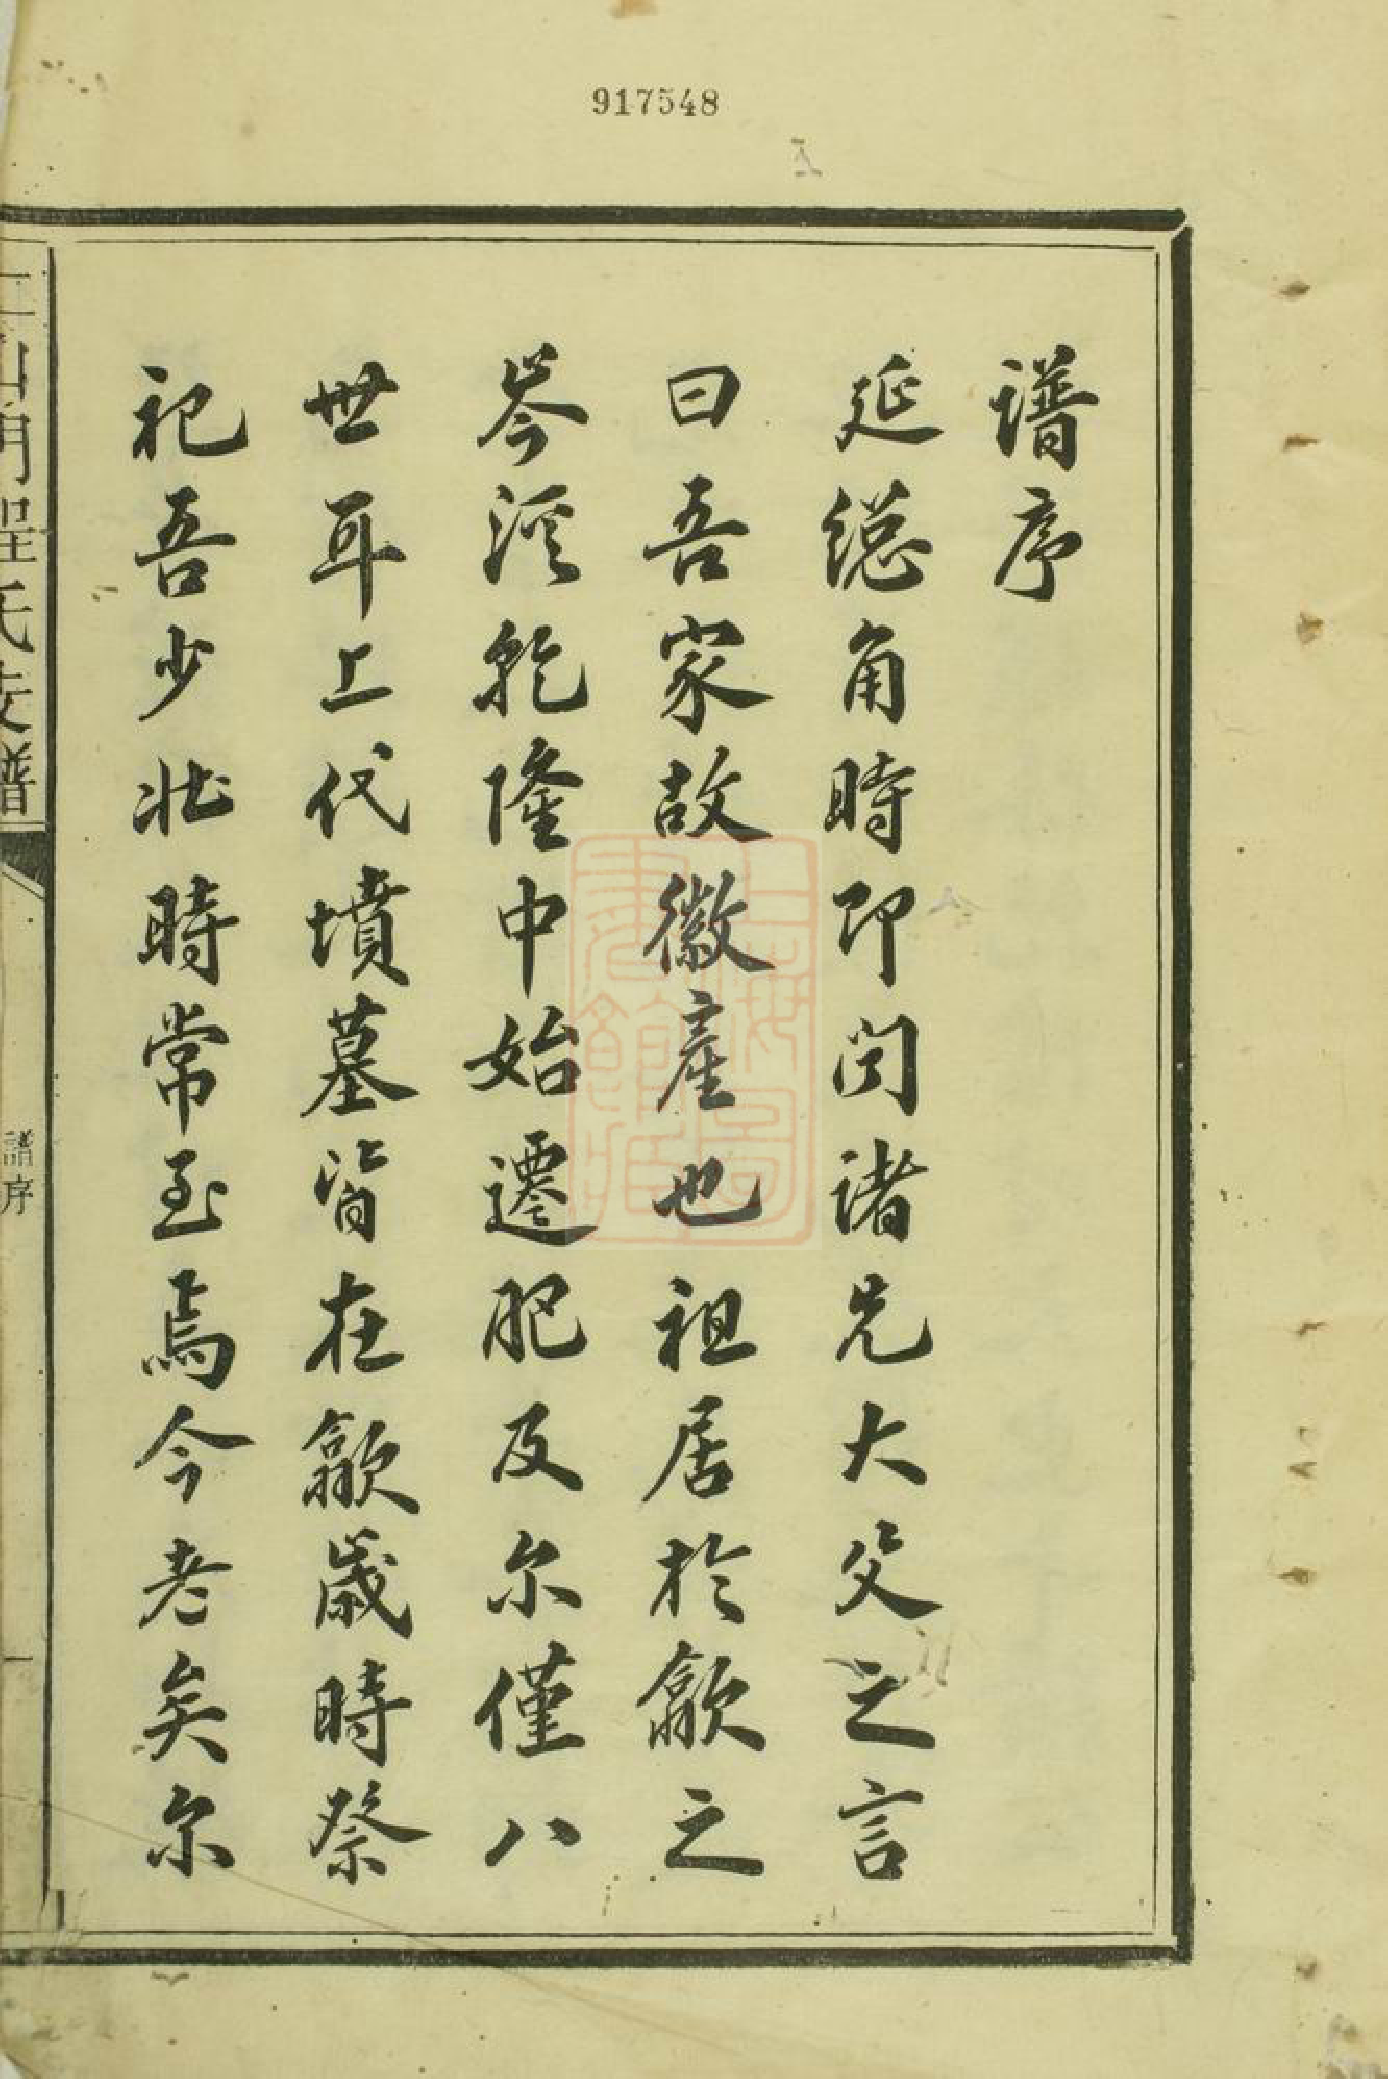 917548
譜序
延緫角時即闻諸先大父之言
曰吾家故徽產也祖居於歙之
岑溪乾隆中始遷肥及尔僅八
世耳上代墳墓皆在歙歲時祭
祀吾少壯時常至焉今老矣尔
氏支譜
譜序
一
上海圖書館藏